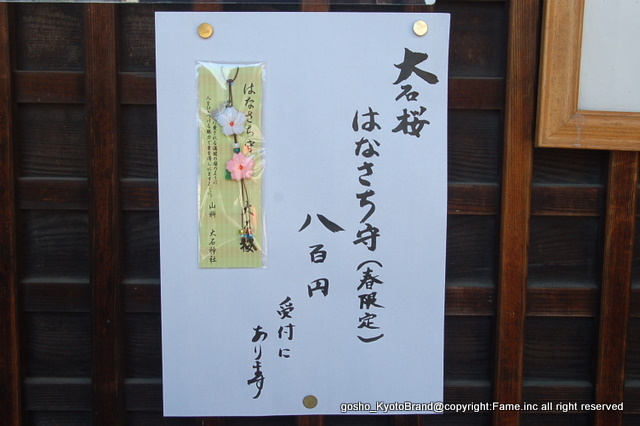 大石桜
はなさち守(春限定)
八百円
受付に
あり〼
はなさち守
山科 大石神社
gosho_KyotoBrand@copyright:Fame.inc all right reserved